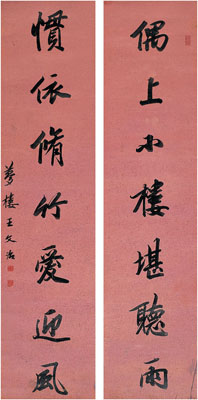 偶上小樓堪聽雨
慣依脩竹愛迎風
夢樓王文治